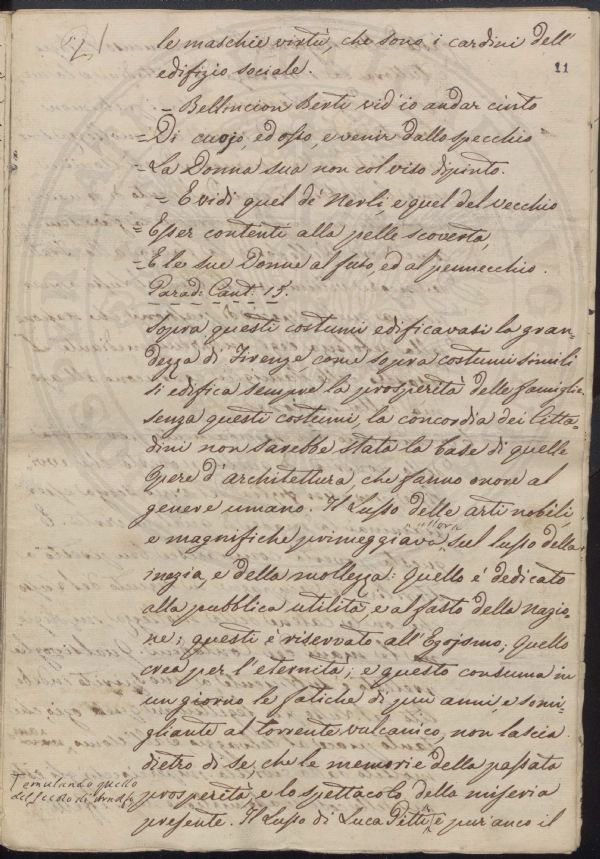 21
11
le maschie virtù, che sono i cardini dell'
edifizio sociale.
= Bellincion Berti vid'io andar cinto
= Di cuojo, ed osso, e venir dallo specchio
= La Donna sua non col viso dipinto.
= E vidi quel de' Nerli, e quel del Vecchio
= Esser contenti alla pelle scoverta,
= E le sue Donne al fuso, ed al pennecchio.
Parad: Cant: 15.
Sopra questi costumi edificavasi la gran=
dezza di Firenze, come sopra costumi simili
si edifica sempre la prosperità delle famiglie.
senza questi costumi, la concordia dei Citta=
dini non sarebbe stata la base di quelle
Opere d'architettura, che fanno onore al
genere umano. Il Lusso delle arti nobili,
e magnifiche primeggiava allora sul lusso della
inezia, e della mollezza: Quello é dedicato
alla pubblica utilità, e al fasto della nazio=
ne; questi é riservato all'Egoismo; Quello
crea per l'eternità; e questo consuma in
un giorno le fatiche di più anni, e somi=
gliante al torrente vulcanico, non lascia
dietro di se, che le memorie della passata
prosperità, e lo spettacolo della miseria
presente. Il Lusso di Luca Pitti e pur anco il
emulando quello
del secolo di Arnolfo